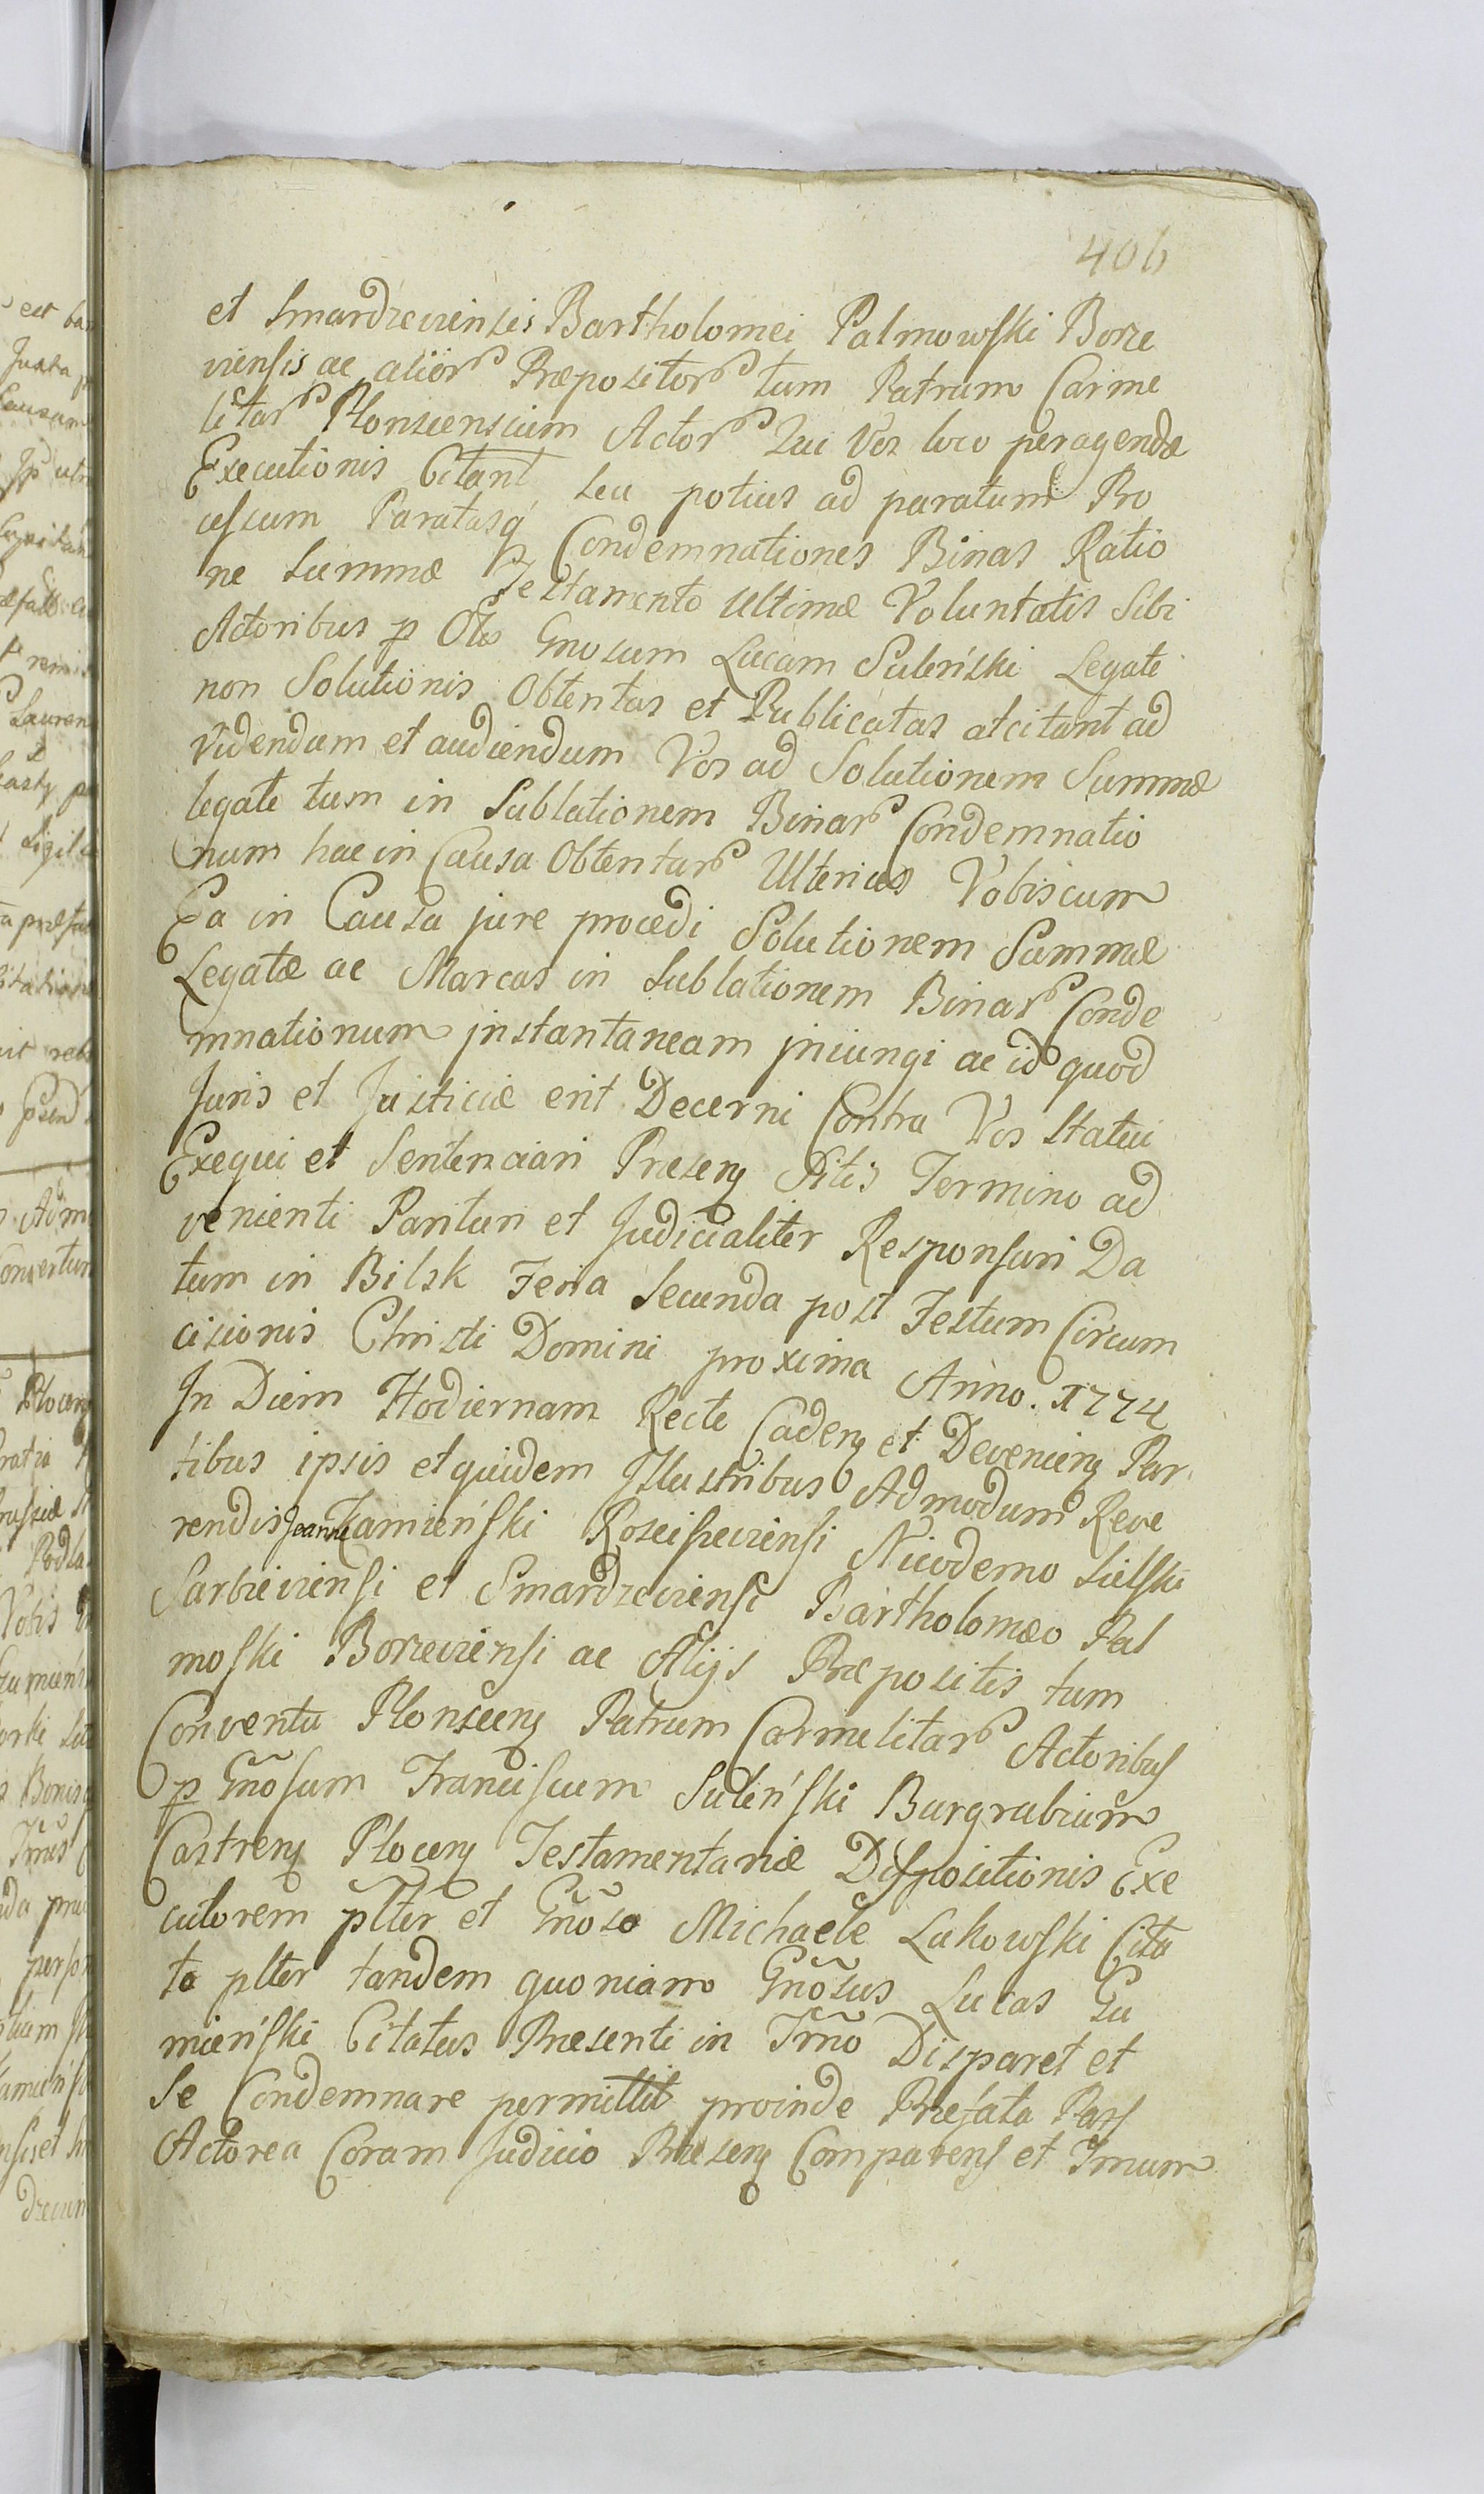 406
et Smardzeviensis Bartholomei Palmowski Borze
viensis ac alior Præpositor tum Patrum Carme
litar Plonscensium Actor Qui Vos loco peragendæ
Executionis Citant seu potius ad paratum Pro
cessum Paratasq Condemnationes Binas Ratio
ne Summæ p Testamento Ultimæ Voluntatis Sibi
Actoribus p Olo Gnosum Lucam Suleński Legatæ
non Solutionis Obtentas et Publicatas atcitant ad
Videndum et audiendum Vos ad Solutionem Summæ
legatæ tum in Sublationem Binar Condemnatio
num hac in Causa Obtentar Ulterius Vobiscum
Ea in Causa jure procedi Solutionem Summæ
Legatæ ac Marcas in Sublationem Binar Conde
mnationum jnstantaneam jniungi ac id quod
Juris et Justiciæ erit Decerni Contra Vos Statui
Exequi et Sentenciari Præseng Citis Termino ad
venienti Parituri et Judicialiter Responsuri Da
tum in Bilsk Feria Secunda post Festum Circum
cisionis Christi Domini proxima Anno. 1774
In Diem Hodiernam Recte Cadeng et Devenieng Par
tibus ipsis et quidem Illustribus Admodum Reve
rendis Joanne Zamieński Rosciszeviensi Nicodemo Lulski
Sarbieviensi et Smardzeviensi Bartholomæo Pal
moski Borzeviensi ac Alijs Præpositis tum
Conventu Plonsceng Patrum Carmelitar Actoribus
p Gnosum Franciscum Suleński Burgrabium
Castreng Ploceng Testamentariæ Dispositionis Exe
cutorem plter et Gnoso Michaele Lukowski Cita
to plter tandem quoniam Gnosus Lucas Gu
mieński Citatus Præsenti in Tmno Disparet et
Se Condemnare permittit proinde Præfata Pars
Actorea Coram Judicio Præseng Comparens et Tmum